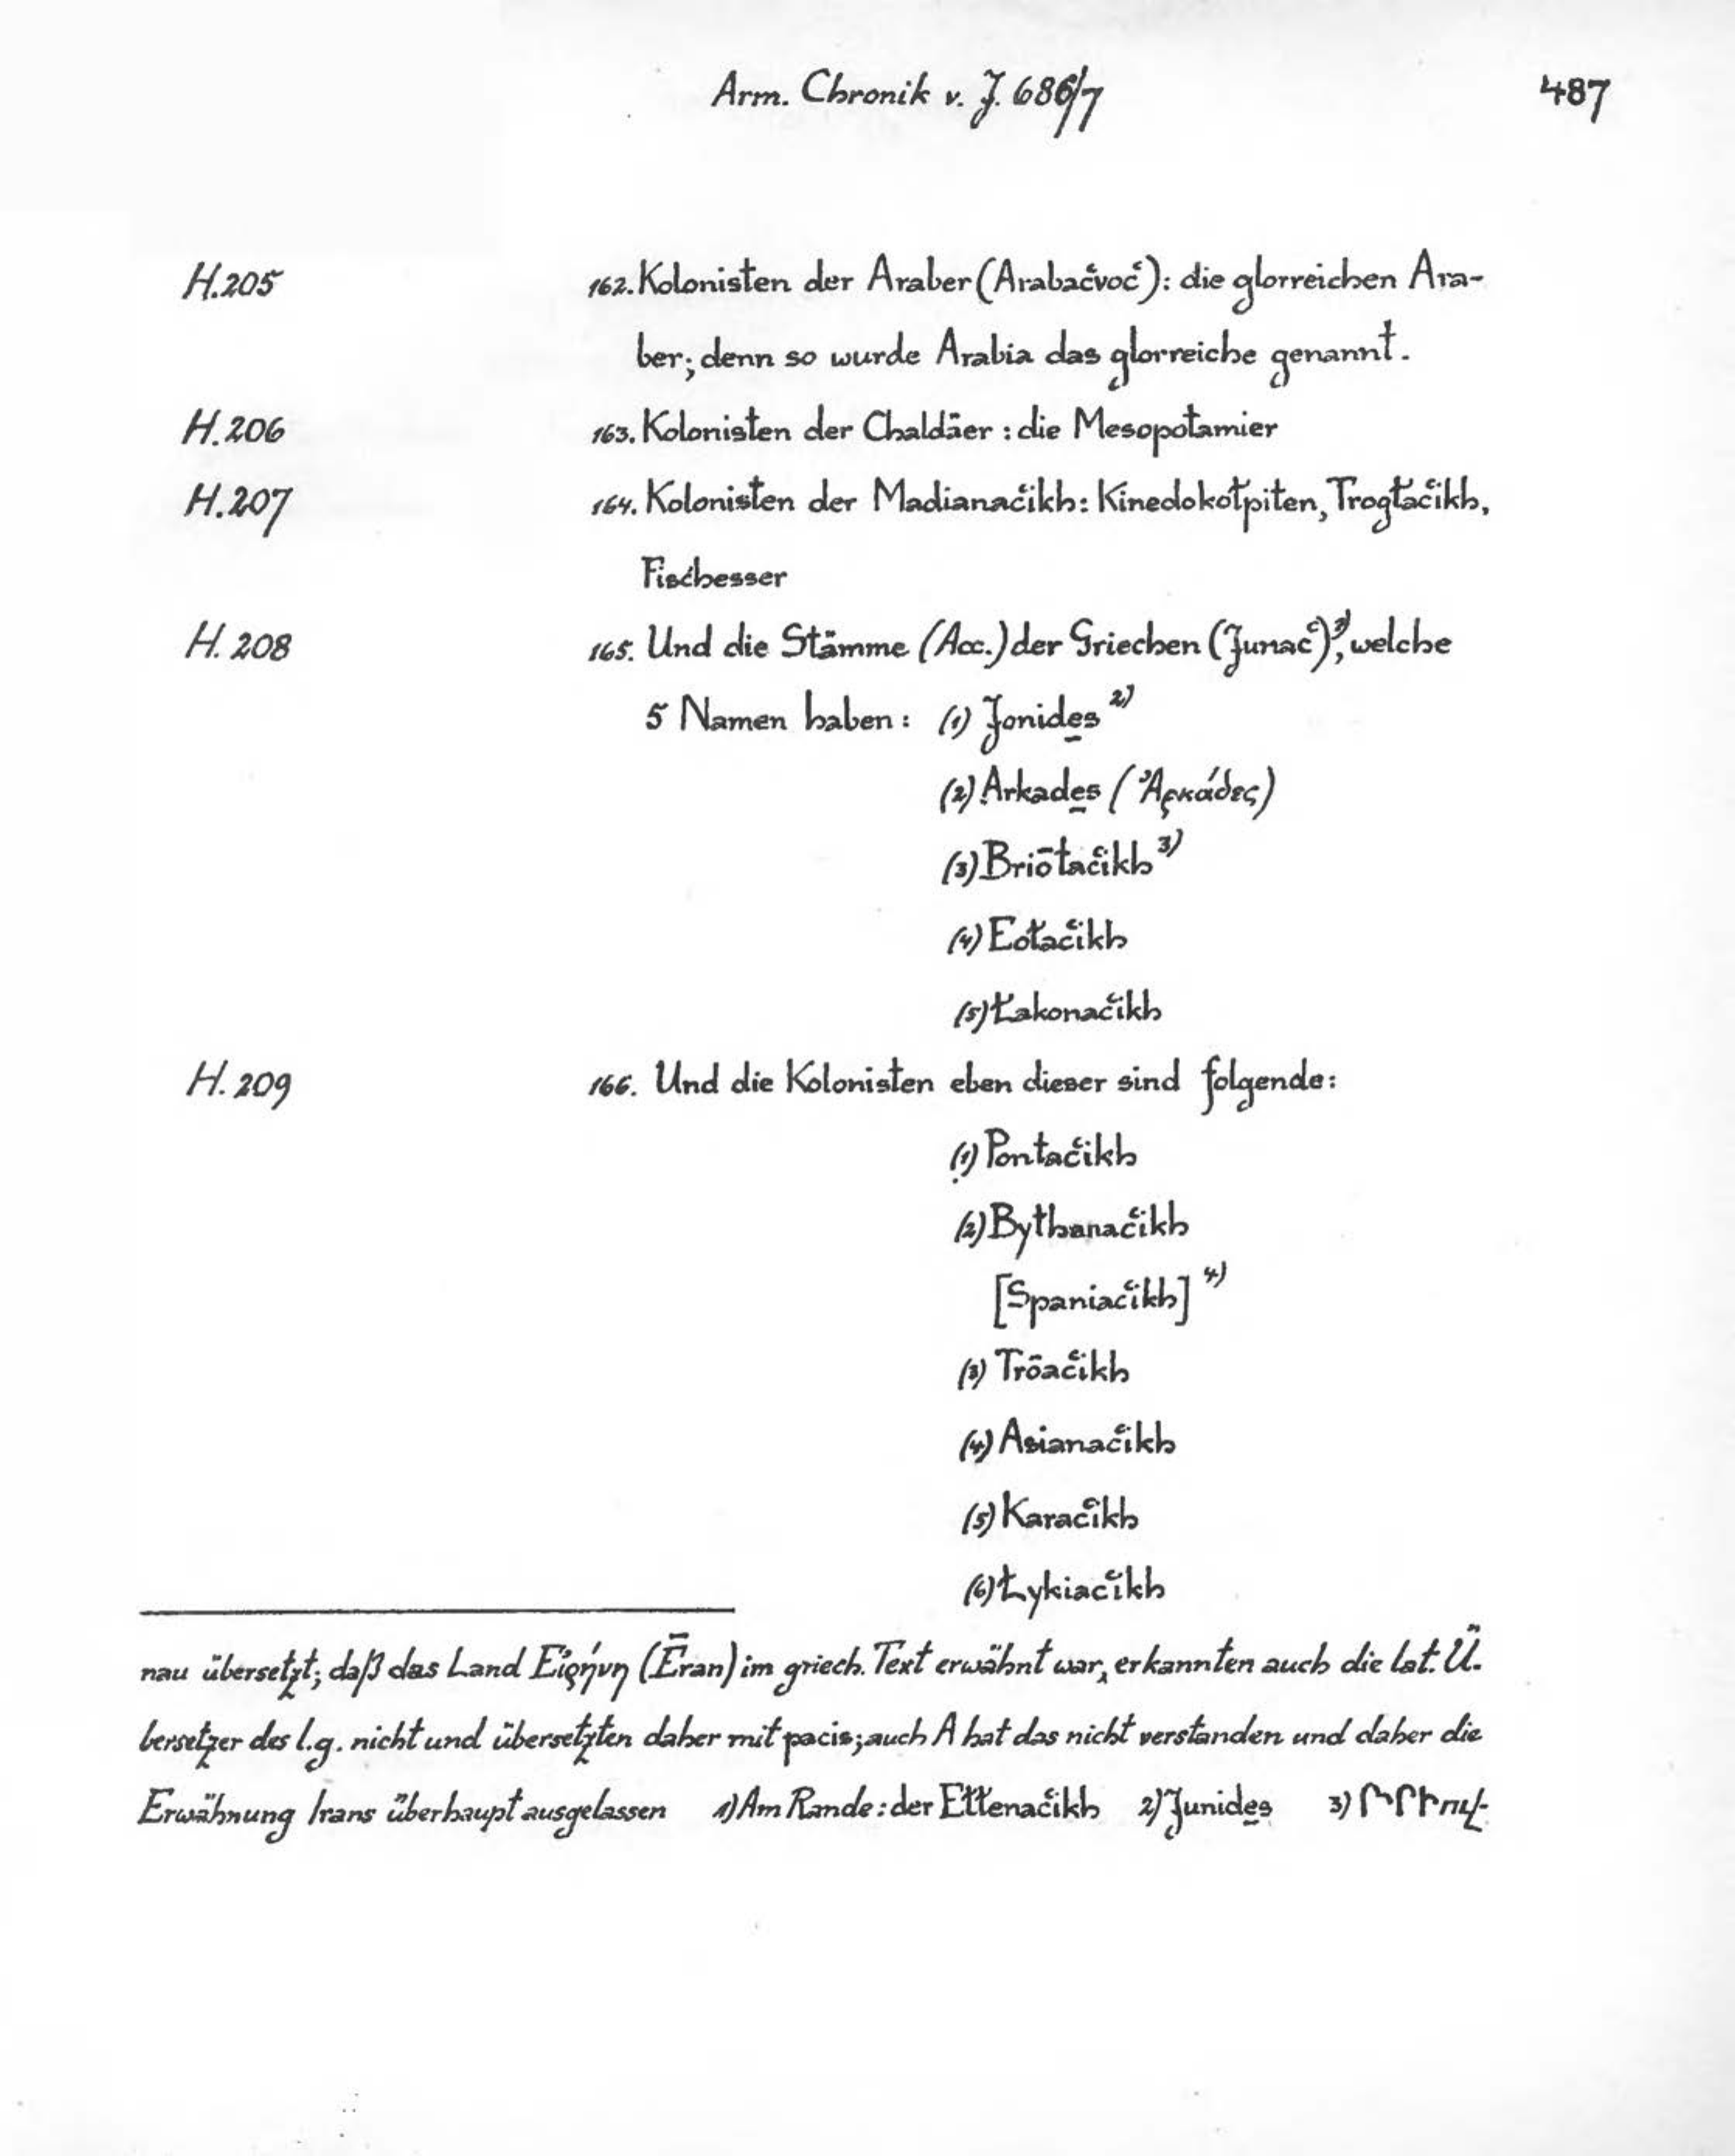 Arm. Chronik v. J. 686/7 487
H.205 162. Kolonisten der Araber (Arabac̔voc̔): die glorreichen Ara-
ber; denn so wurde Arabia das glorreiche genannt.
H.206 163. Kolonisten der Chaldäer: die Mesopotamier
H.207 164. Kolonisten der Madianac̔ikh: Kinedokołpiten, Trogłac̔ikh,
Fischesser
H.208 165. Und die Stämme (Acc.) der Griechen (Junac̔), welche
5 Namen haben: (1) Jonides 2)
(2) Arkades (Ἀρκάδες)
(3) Briōtac̔ikh 3)
(4) Eołac̔ikh
(5) Łakonac̔ikh
H.209 166. Und die Kolonisten eben dieser sind folgende:
(1) Pontac̔ikh
(2) Bythanac̔ikh
[Spaniac̔ikh] 4)
(3) Trōac̔ikh
(4) Asianac̔ikh
(5) Karac̔ikh
(6) Łykiac̔ikh
nau übersetzt; daß das Land Εἰρήνη (Ēran) im griech. Text erwähnt war, erkannten auch die lat. Ü-
bersetzer des l.g. nicht und übersetzten daher mit pacis; auch A hat das nicht verstanden und daher die
Erwähnung Irans überhaupt ausgelassen 1) Am Rande: der Ełłenac̔ikh 2) Junides 3)